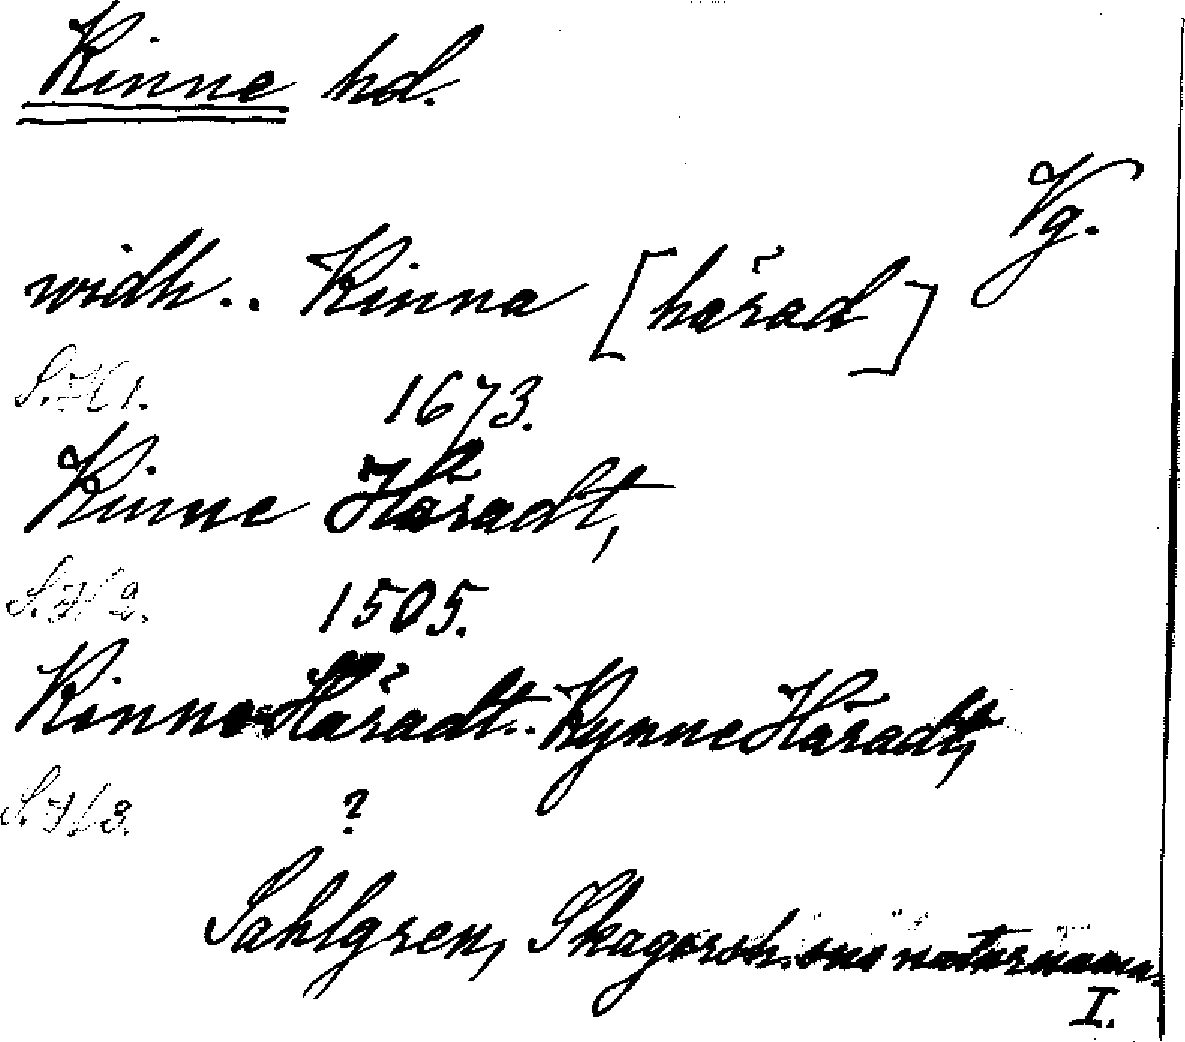 Kinne hd.
Vg.
widh.. Kinna [härad]
S.H 1. 1673.
Kinne Häradt,
S.H 2. 1505.
Kinne-Häradt.. Kynne Häradt,
S.H 3. ?
Sahlgren, Skagersh. sns naturnamn.
I.